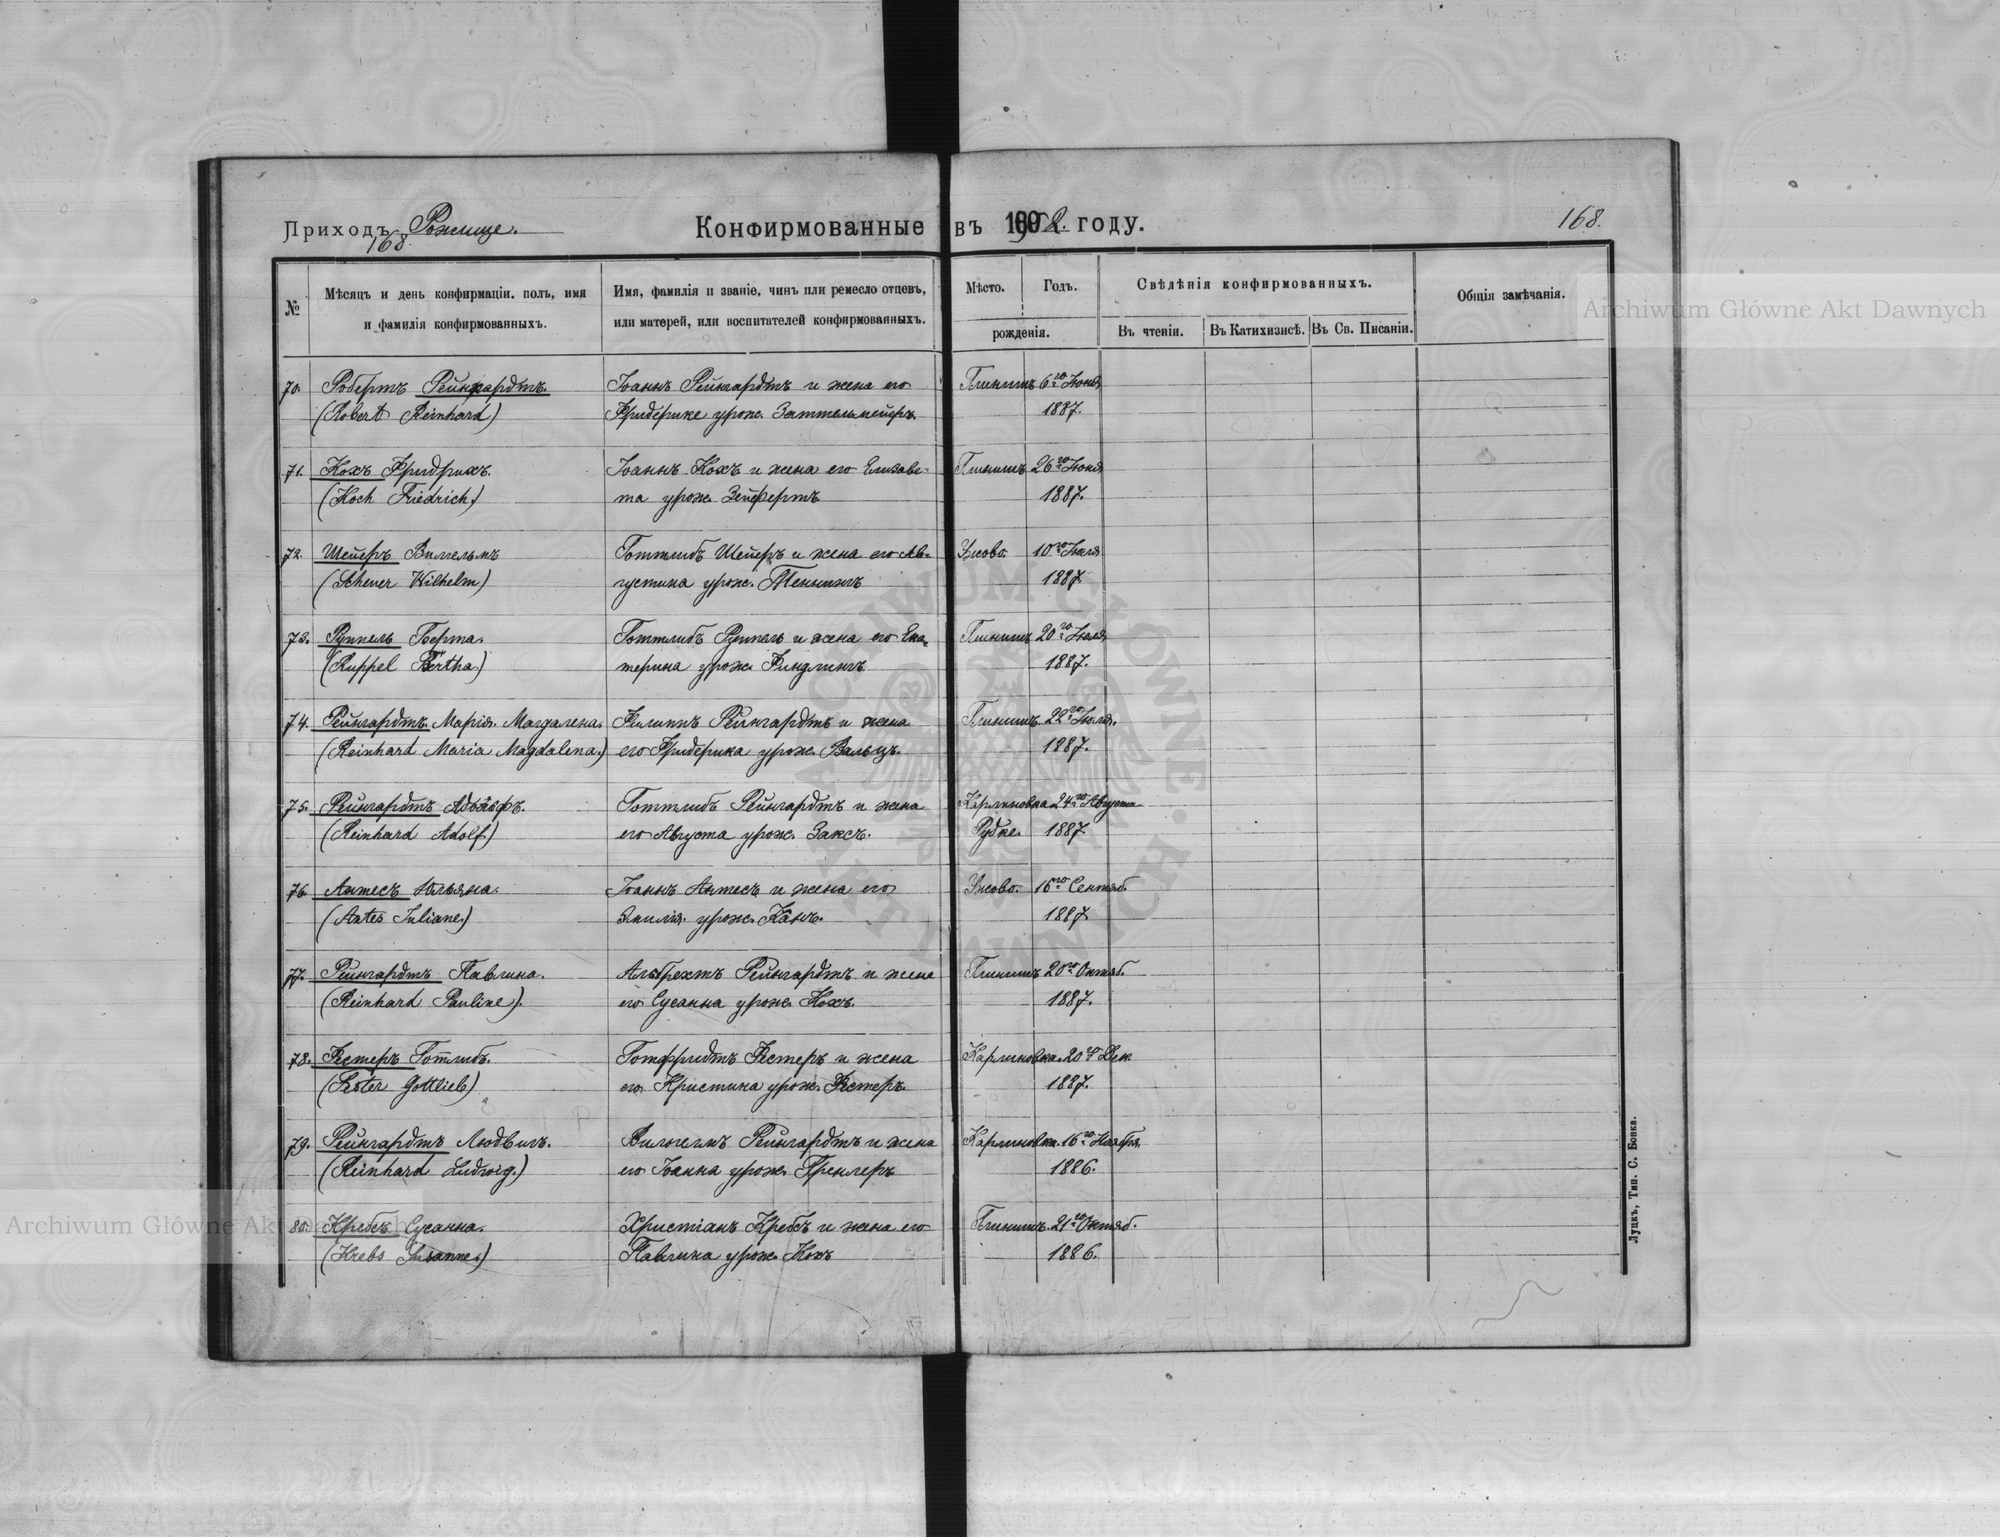 Приходъ Рожище.
168
Конфирмованные въ 1902. году.
168.
№
Мѣсяцъ и день конфирмаціи. полъ, имя
и фамилія конфирмованныхъ.
Имя, фамилія и званіе, чинъ или ремесло отцевъ,
или матерей, или воспитателей конфирмованныхъ.
Мѣсто.
Годъ.
рожденія.
Свѣдѣнія конфирмованныхъ.
Въ чтеніи.
Въ Катихизисѣ.
Въ Св. Писаніи.
Общія замѣчанія.
Archiwum Główne Akt Dawnych
70. Робертъ Рейнгардтъ. Іоаннъ Рейнгардтъ и жена его 6го Іюня
(Robert Reinhard) Фридерике урож. Заттельмейеръ. 1887.
71. Кохъ Фридрихъ. Іоаннъ Кохъ и жена его Елизаве- 26го Іюня
(Koch Friedrich) та урож. Зейфертъ 1887.
72. Шейеръ Вилгельмъ Готтлибъ Шейеръ и жена его Ав- Ужово. 10го Іюля
(Scheuer Wilhelm) густина урож. Теннингъ 1887.
73. Руппель Берта. Готтлибъ Руппель и жена его Ека- 20го Іюля
(Ruppel Bertha.) терина урож. Финдлингъ 1887.
74. Рейнгардтъ Марія Магдалена. Филиппъ Рейнгардтъ и жена 22го Іюля.
(Reinhard Maria Magdalena.) его Фридерика урож. Вальцъ. 1887.
75. Рейнгардтъ Адольфъ. Готтлибъ Рейнгардтъ и жена Карлиновка 24го Августа
(Reinhard Adolf.) его Августа урож. Заксъ. Рудке. 1887.
76. Антесъ Юльяна. Іоаннъ Антесъ и жена его Ужово. 16го Сентяб.
(Antes Juliane.) Эмилія урож. Канъ. 1887.
77. Рейнгардтъ Павлина. Альбрехтъ Рейнгардтъ и жена 20го Октяб.
(Reinhard Pauline). его Сусанна урож. Кохъ. 1887.
78. Фестеръ Готлибъ. Готфридтъ Фестеръ и жена Карлиновка. 20го Дек
(Fester Gottlieb) его Кристина урож. Фестеръ. 1887.
79. Рейнгардтъ Людвигъ. Вильгелмъ Рейнгардтъ и жена Карлиновка. 16го Ноября
(Reinhard Ludwig.) его Іоанна урож. Пренглеръ 1886.
80. Кребсъ Сусанна. Христіанъ Кребсъ и жена его 21го Октяб.
(Krebs Susanne.) Павлина урож. Кохъ 1886.
Луцкъ, Тип. С. Бонка.
Archiwum Główne Akt Dawnych
ARCHIWUM GŁÓWNE AKT DAWNYCH